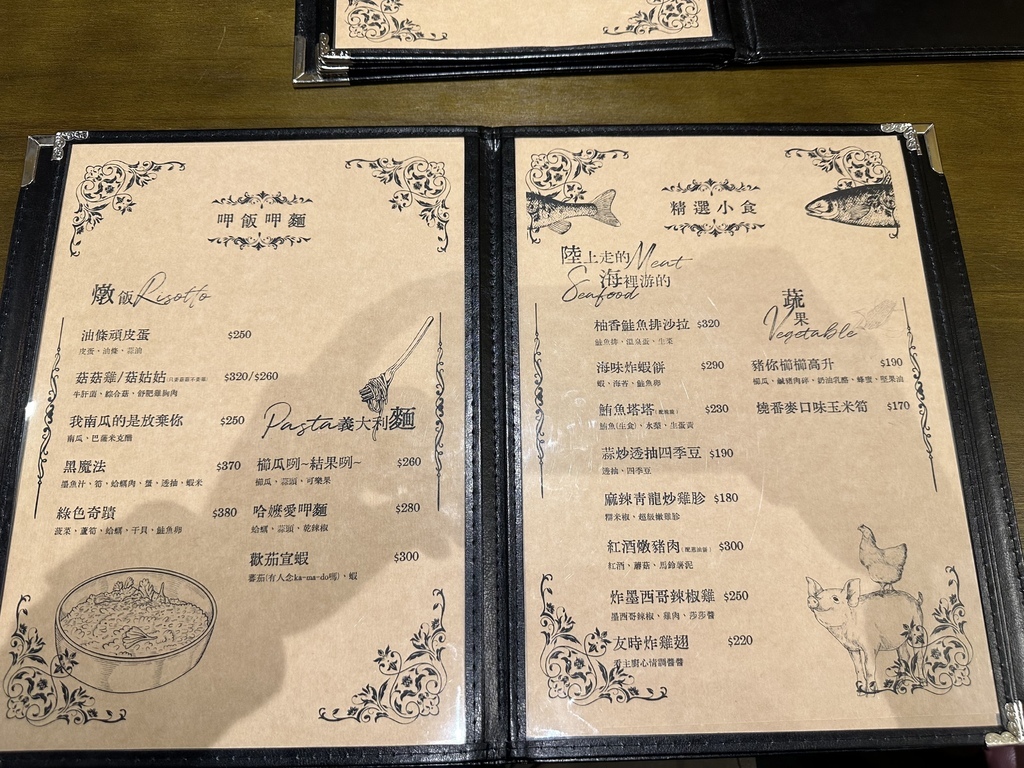 呷飯呷麵
燉飯Risotto
油條頑皮蛋 $250
皮蛋、油條、蒜油
菇菇雞/菇姑姑 $320/$260
牛肝菌、綜合菇、舒肥雞胸肉
我南瓜的是放棄你 $250
南瓜、巴薩米克醋
黑魔法 $370
墨魚汁、筍、蛤蠣肉、蟹、透抽、蝦米
綠色奇蹟 $380
菠菜、蘆筍、蛤蠣、干貝、鮭魚卵
Pasta義大利麵
櫛瓜咧~結果咧~ $260
櫛瓜、蒜頭、可樂果
哈嬤愛呷麵 $280
蛤蠣、蒜頭、乾辣椒
歡茄宣蝦 $300
蕃茄(有人念ka-ma-do嗎)、蝦
精選小食
陸上走的Meat
海裡游的
Seafood
柚香鮭魚排沙拉 $320
鮭魚排、溫泉蛋、生菜
海味炸蝦餅 $290
蝦、海苔、鮭魚卵
鮪魚塔塔 $230
鮪魚(生食)、水菜、生蛋黃
蒜炒透抽四季豆 $190
透抽、四季豆
麻辣青龍炒雞胗 $180
糯米椒、超級嫩雞胗
紅酒燉豬肉 $300
紅酒、蘑菇、馬鈴薯泥
炸墨西哥辣椒雞 $250
墨西哥辣椒、雞肉、莎莎醬
友時炸雞翅 $220
看主廚心情調醬醬
蔬果
Vegetable
豬你櫛櫛高升 $190
櫛瓜、鹹豬肉碎、奶油乳酪、蜂蜜、堅果油
燒番麥口味玉米筍 $170